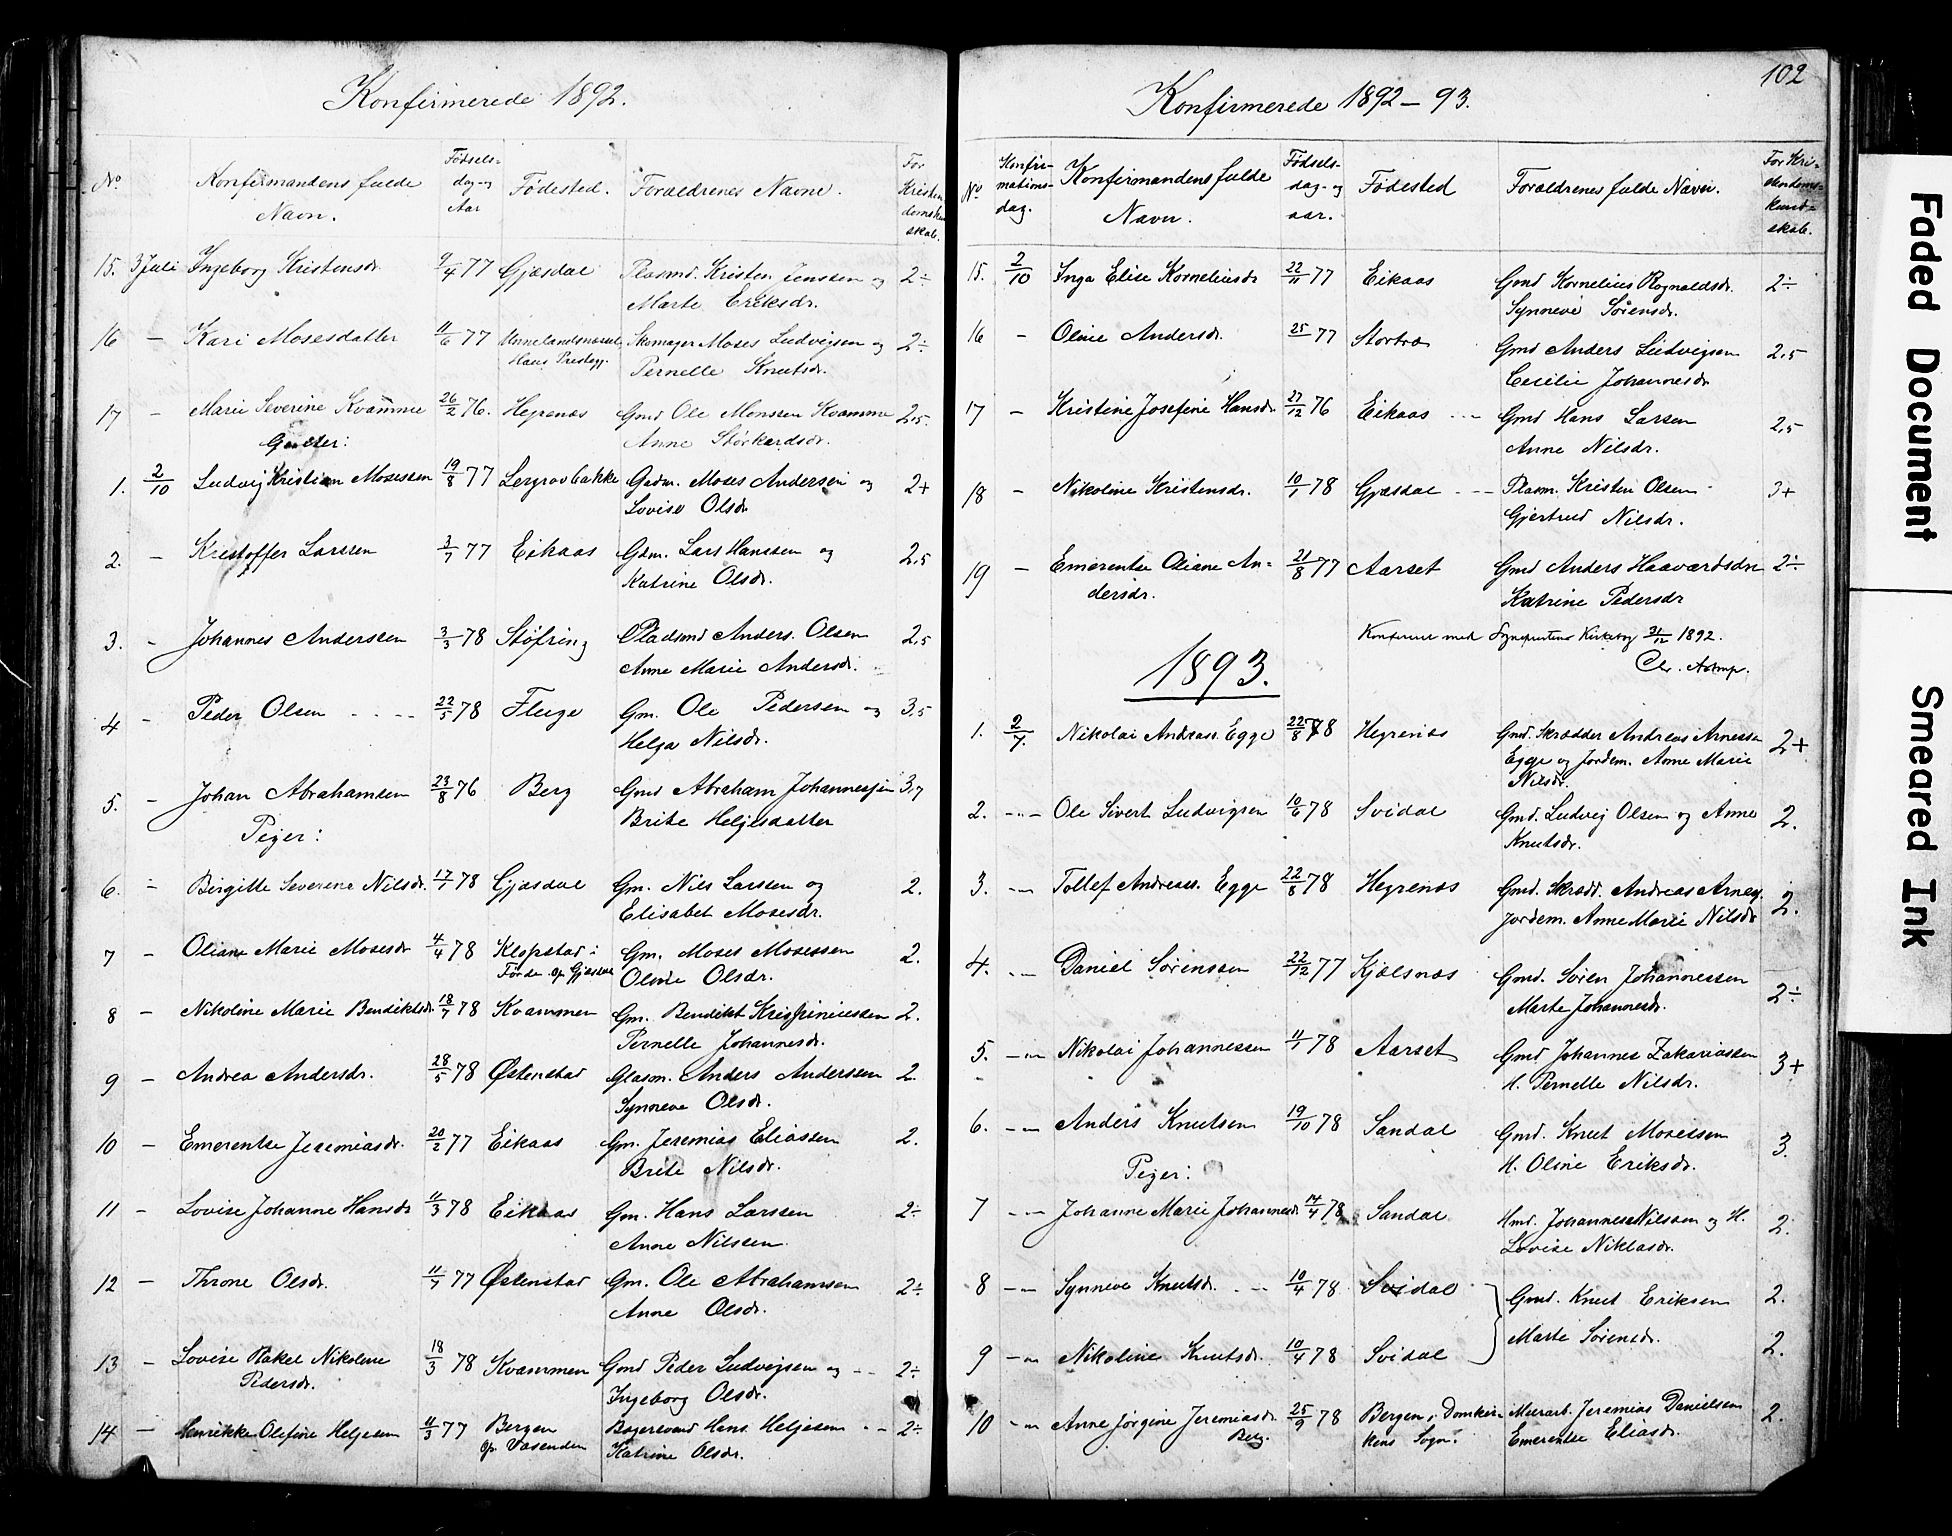 Konfirmerede 1892.
No Konfirmandens fulde Navn. Fødsels-dag og Aar Fødested. Forældrenes Navne. For Kristendomskundskab.
15. 3 Juli Ingeborg Kristensdr. 9/4 77 Gjæsdal Pladsmd. Kristen Jenssen og 2÷
Marte Eriksdr.
16 — Kari Mosesdatter 11/6 77 Skomager Moses Ludvigsen og 2÷
Hans Presteg. Pernelle Knutsdr.
17 — Marie Severine Kvamme 26/2 76. Hegrenæs Gmd Ole Monssen Kvamme 2,5.
Anne Størkardsdr.
Gutter:
1. 2/10 Ludvig Kristian Mosessen 19/8 77 Lergrovbakke Gadm. Moses Andersen og 2+
Lovise Olsdr
2. — Kristoffer Larssen 3/7 77 Eikaas Gdm. Lars Hanssen og 2,5
Katrine Olsdr.
3. — Johannes Anderssen 3/3 78 Støfring Pladsmd Anders Olsen 2,5
Anne Marie Andersdr.
4 — Peder Olsen - - - - 22/5 78 Fluge Gm. Ole Pedersen og 3,5
Helga Nilsdr.
5. — Johan Abrahamsen 23/8 76 Berg Gmd Abraham Johannessen 3,7
Brite Heljesdatter
Piger:
6. — Birgitte Severine Nilsdr. 17/1 78 Gjæsdal Gm. Nils Larssen og 2.
Elisabet Mosesdr.
7 — Oliane Marie Mosesdr 4/4 78 Klopstad i Gm. Moses Mosessen 2.
Førde op Gjæsdal Oline Olsdr.
8 — Nikoline Marie Bendiktsdr. 18/7 78 Kvammen Gm. Bendikt Krispiniussen 2.
Pernelle Johannesdr.
9 — Andrea Andersdr. 28/5 78 Østenstad Glasm. Anders Anderssen 2.
Synneve Olsdr.
10 — Emerentse Jeremiasdr. 20/2 77 Eikaas Gm. Jeremias Eliassen 2.
Brite Nilsdr.
11 — Lovise Johanne Hansdr 11/3 78 Eikaas Gm. Hans Larssen 2÷
Anne Nilssen.
12 — Throne Olsdr. 11/7 77 Østenstad Gm. Ole Abrahamsen 2÷
Anne Olsdr.
13 — Lovise Rakel Nikoline 18/3 78 Kvammen Gmd Peder Ludvigsen og - - 2÷
Pedersdr. Ingeborg Olsdr.
14 — Henrikke Olefine Heljesen 11/3 77 Bergen Hans Heljesen - - 2÷
op Vasenden Katrine Olsdr.
102
Konfirmerede 1892 — 93.
No. Konfirmationsdag. Konfirmandens fulde Navn. Fødsels-dag- og aar. Fødested Forældrenes fulde Navn. For Kristendomskundskab.
15. 2/10 Inga Elise Korneliusdr 22/11 77 Eikaas Gmd Kornelius Rognaldsdr. 2÷
Synneve Sørensdr.
16 — Oline Andersdr. 25/ 77 Stortræ Gmd Anders Ludvigsen 2,5
Cecilie Johannesdr
17 — Kristine Josefine Hansdr. 27/12 76 Eikaas - - - Gmd Hans Larsen 2,5
Anne Nilsdr.
18 — Nikoline Kristensdr. 10/1 78 Gjæsdal - - - Plasm. Kristen Olsen 3+
Gjertrud Nilsdr.
19 — Emerentse Oliane An- 21/8 77 Aarset Gmd Anders Haavardsdn 2÷
dersdr. Katrine Pedersdr
Konfereret med Sogneprestens Kirkebog 31/12 1892.
Chr. Astrup.
1893.
1. 2/7. Nikolai Andreas. Egge 22/8 78 Hegrenæs Gmd. Skrædder Andreas Arnessen 2+
Egge og Jordem. Anne Marie
Nilsdr.
2. - " - Ole Sivert Ludvigsen 10/6 78 Svidal Gmd. Ludvig Olsen og Anne 2.
Knutsdr.
3. - " - Tollef Andreas. Egge 22/8 78 Hegrenæs Gmd. Skrædd. Andreas Arness. og 2.
Jordem. Anne Marie Nilsdr
4. - " - Daniel Sørenssen 22/12 77 Kjølsnæs Gmd. Søren Johannessen 2÷
Marte Johannesdr.
5. - " - Nikolai Johannessen 11/1 78 Aarset Gmd. Johannes Zakariassen 3+
H. Pernelle Nilsdr.
6. - " - Anders Knutsen 19/10 78 Sandal Gmd. Knut Mosessen 3.
H. Oline Eriksdr.
Piger:
7 - " - Johanne Marie Johannesdr 14/4 78 Sandal Hmd. Johannes Nilssen og H. 2.
Lovise Niklasdr.
8 - " - Synneve Knutsdr. - - - 10/4 78 Svidal Gmd. Knut Eriksen 2.
Marte Sørensdr.
9 - " - Nikoline Knutsdr. 10/4 78 Svidal 2.
10 - " - Anne Jørgine Jeremiasdr 25/9 78 Bergen, Domkir- Murarb. Jeremias Danielsen 2.
Berg. kens Sogn. Emerentse Eliasdr.
Faded Document
Smeared Ink